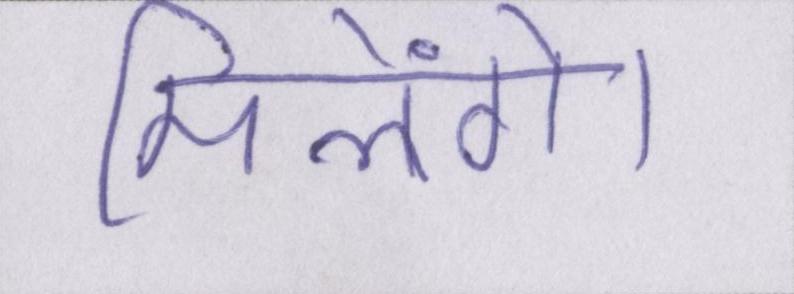 मिलेंगे।